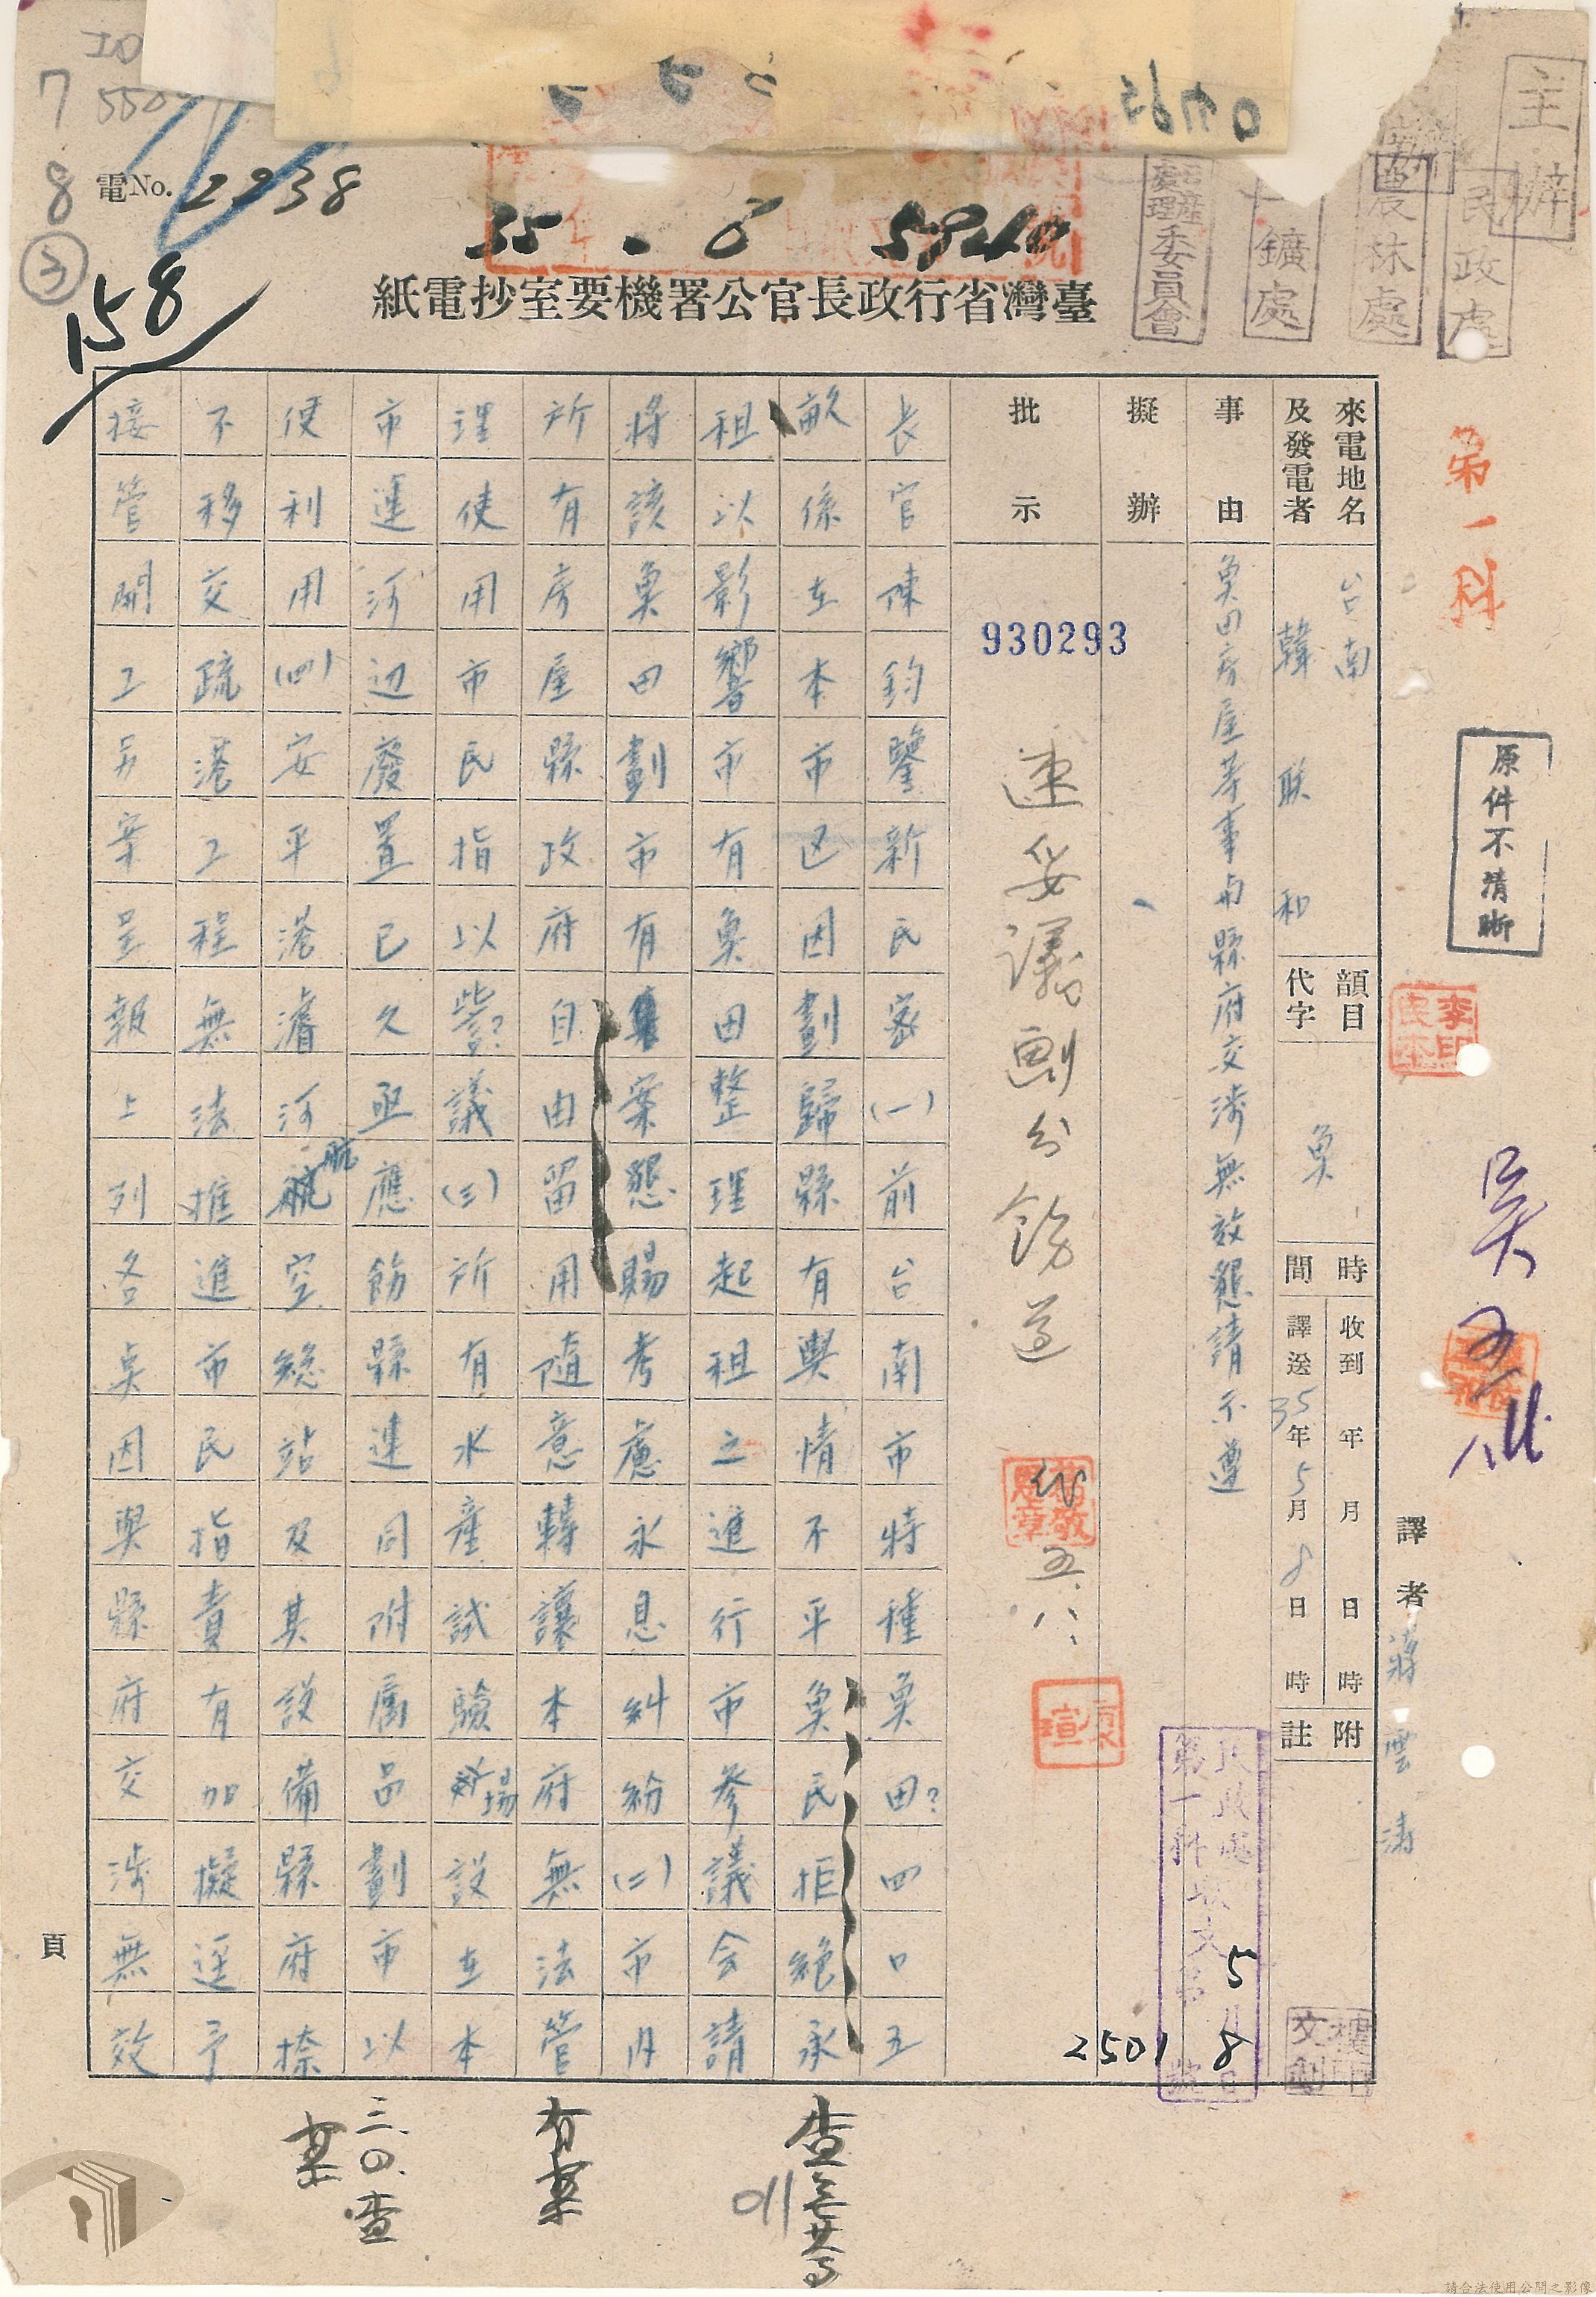 電No. 2238
35.8
158
臺灣省行政長官公署機要室抄電紙
主辦
民政處
農林處
鑛處
處理委員會
第一科
原件不清晰
李印
譯者 蔣雲濤
來電地名 台南
及發電者 韓联和
韻目
代字 魚
時間
收到 年 月 日 時
譯送 35年5月8日 時
附註
事由 魚田房屋等事与縣府交涉無效懇請示遵
擬辦
批示
930293
速妥議劃分飭遵
代 五、八、
民政處
第一科收文 5月8日
2501 號
長官陳鈞鑒新民密(一)前台南市特種魚田?四口五
畝係在本市区因劃歸縣有輿情不平魚民拒絶承
租以影響市有魚田整理起租之進行市參議会請
將該魚田劃市有集案懇賜考慮永息糾紛(二)市内
所有房屋縣政府自由留用随意轉讓本府無法管
理使用市民指以訾?議(三)所有水産試驗場設在本
市運河辺廢置已久亟應飭縣連同附屬品劃市以
便利用(四)安平港濬河航空總站及其設備縣府捺
不移交疏港工程無法推進市民指責有加擬逕予
接管開工另案呈報上列各奌因與縣府交涉無效
頁
有案
三、四、查
案
請合法使用公開之影像